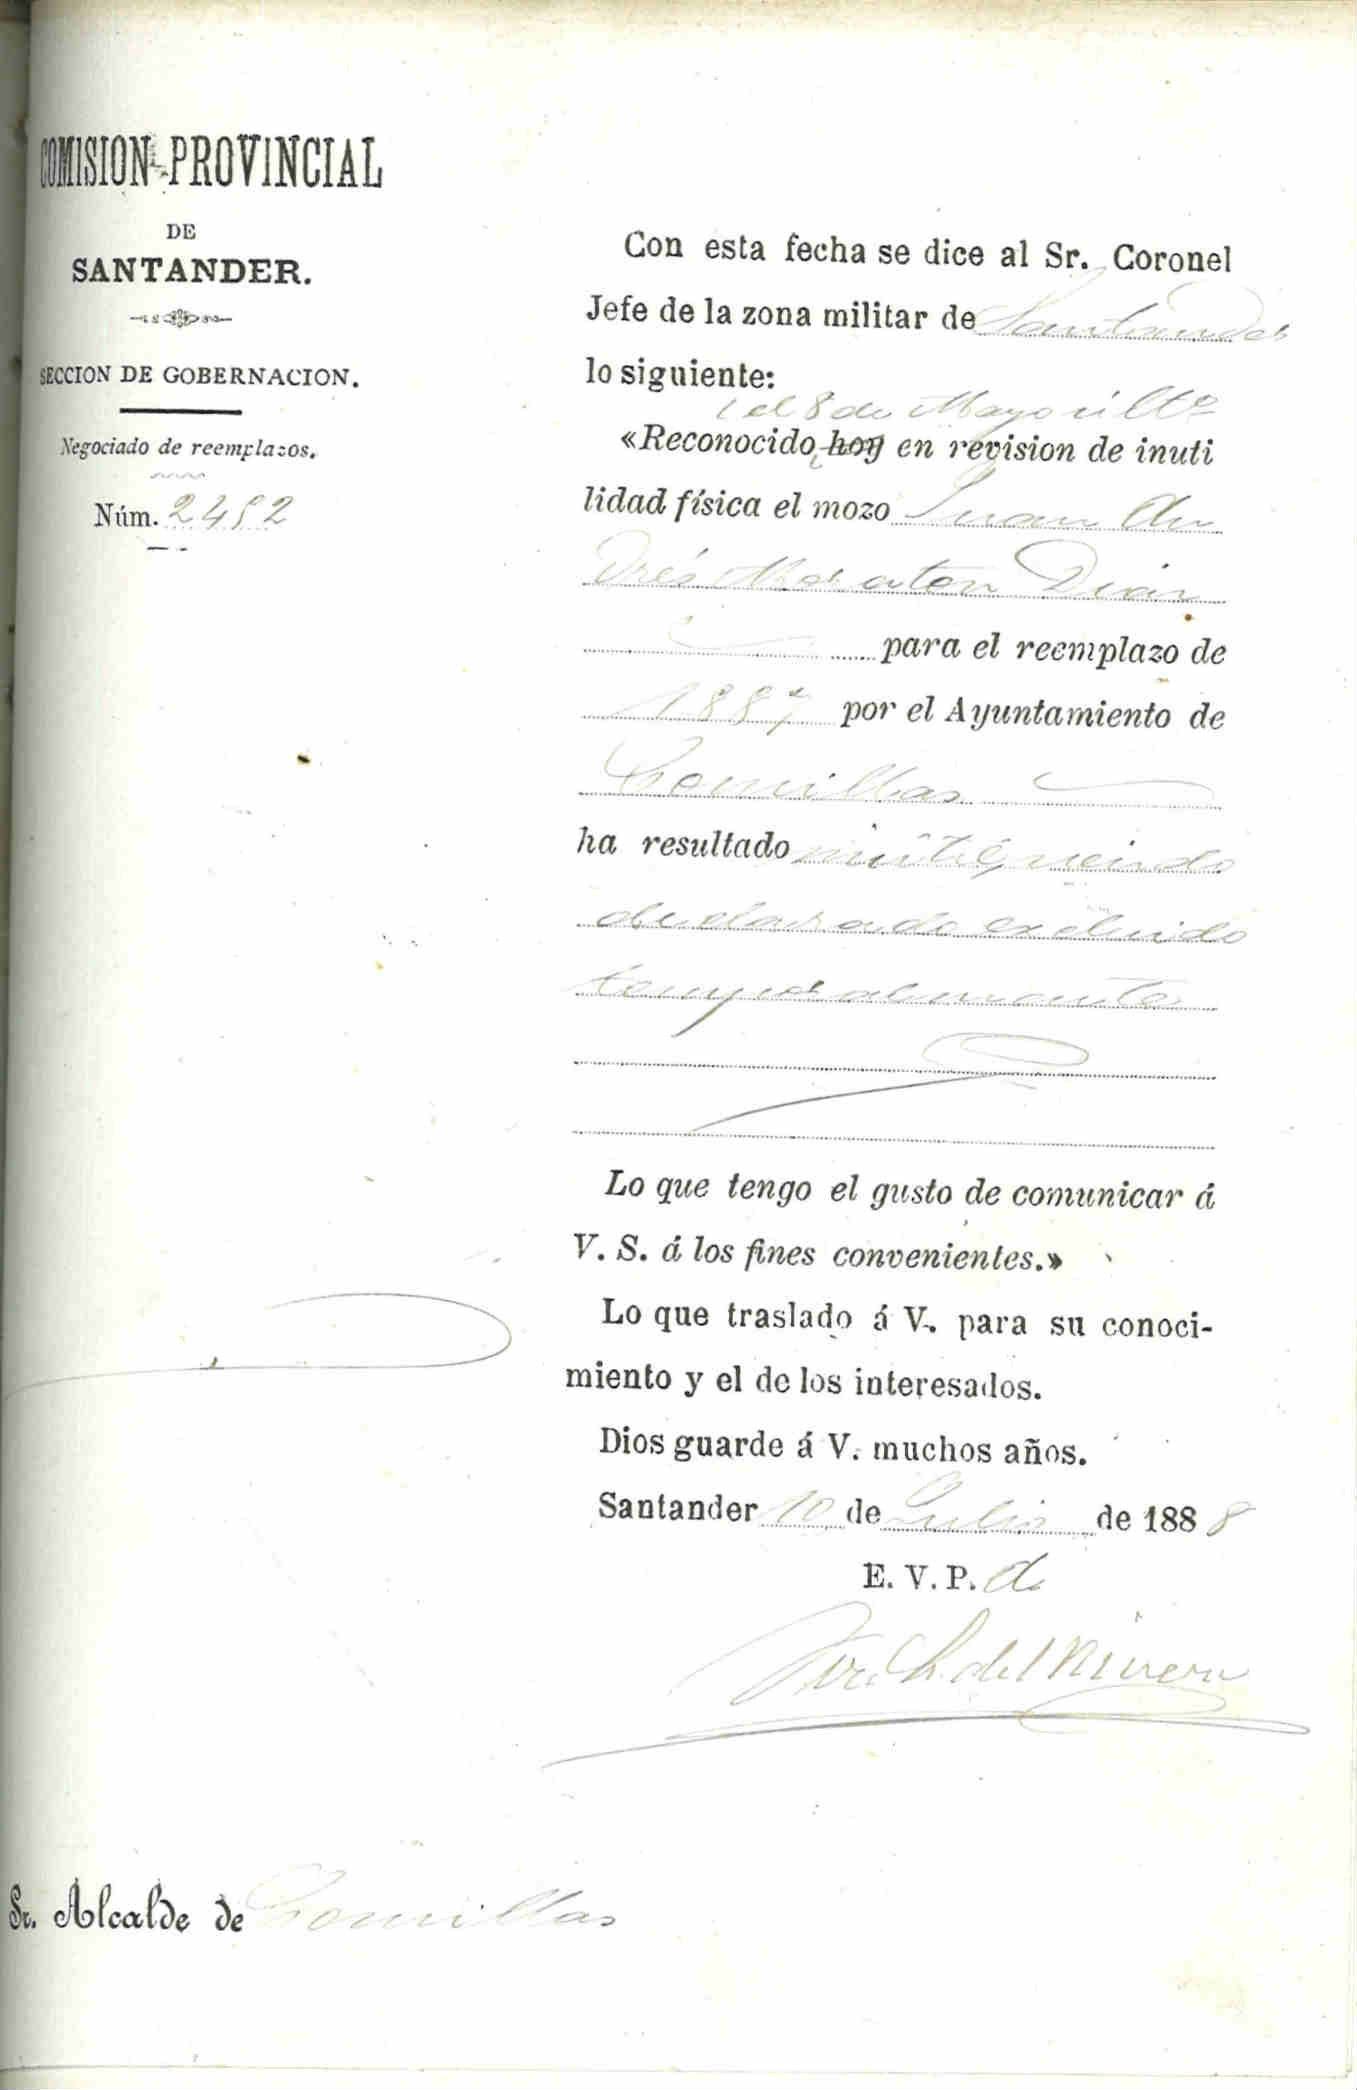 COMISION PROVINCIAL
DE
SANTANDER.
SECCION DE GOBERNACION.
Negociado de reemplazos.
Núm. 2452
Con esta fecha se dice al Sr. Coronel
Jefe de la zona militar de Santander
lo siguiente:
el 8 de Mayo últº
«Reconocido hoy en revision de inuti
lidad física el mozo Juan An
drés Díaz
para el reemplazo de
1887 por el Ayuntamiento de
Comillas
ha resultado inútil, siendo
declarado excluido
temporalmente
Lo que tengo el gusto de comunicar á
V. S. á los fines convenientes.»
Lo que traslado á V. para su conoci-
miento y el de los interesados.
Dios guarde á V. muchos años.
Santander 10 de Julio de 1888
E. V. P.
del Rivero
Sr. Alcalde de Comillas